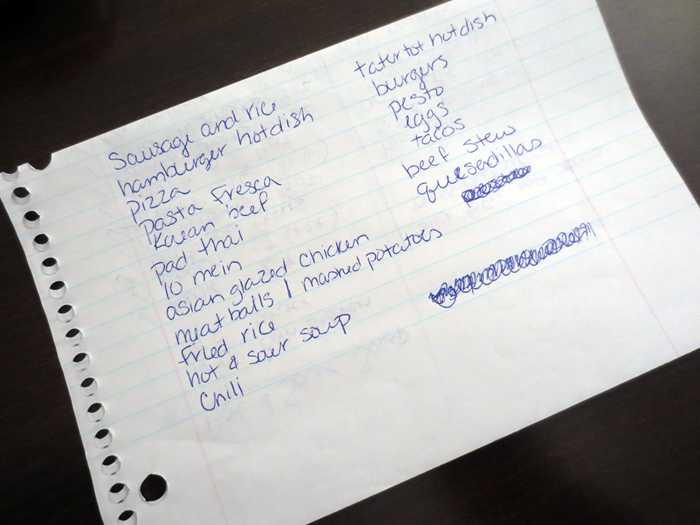 Sausage and rice
hamburger hotdish
Pizza
pasta fresca
Korean beef
pad thai
lo mein
asian glazed chicken
meatballs / mashed potatoes
fried rice
hot & sour soup
Chili
tatertot hotdish
burgers
pesto
eggs
tacos
beef stew
quesadillas